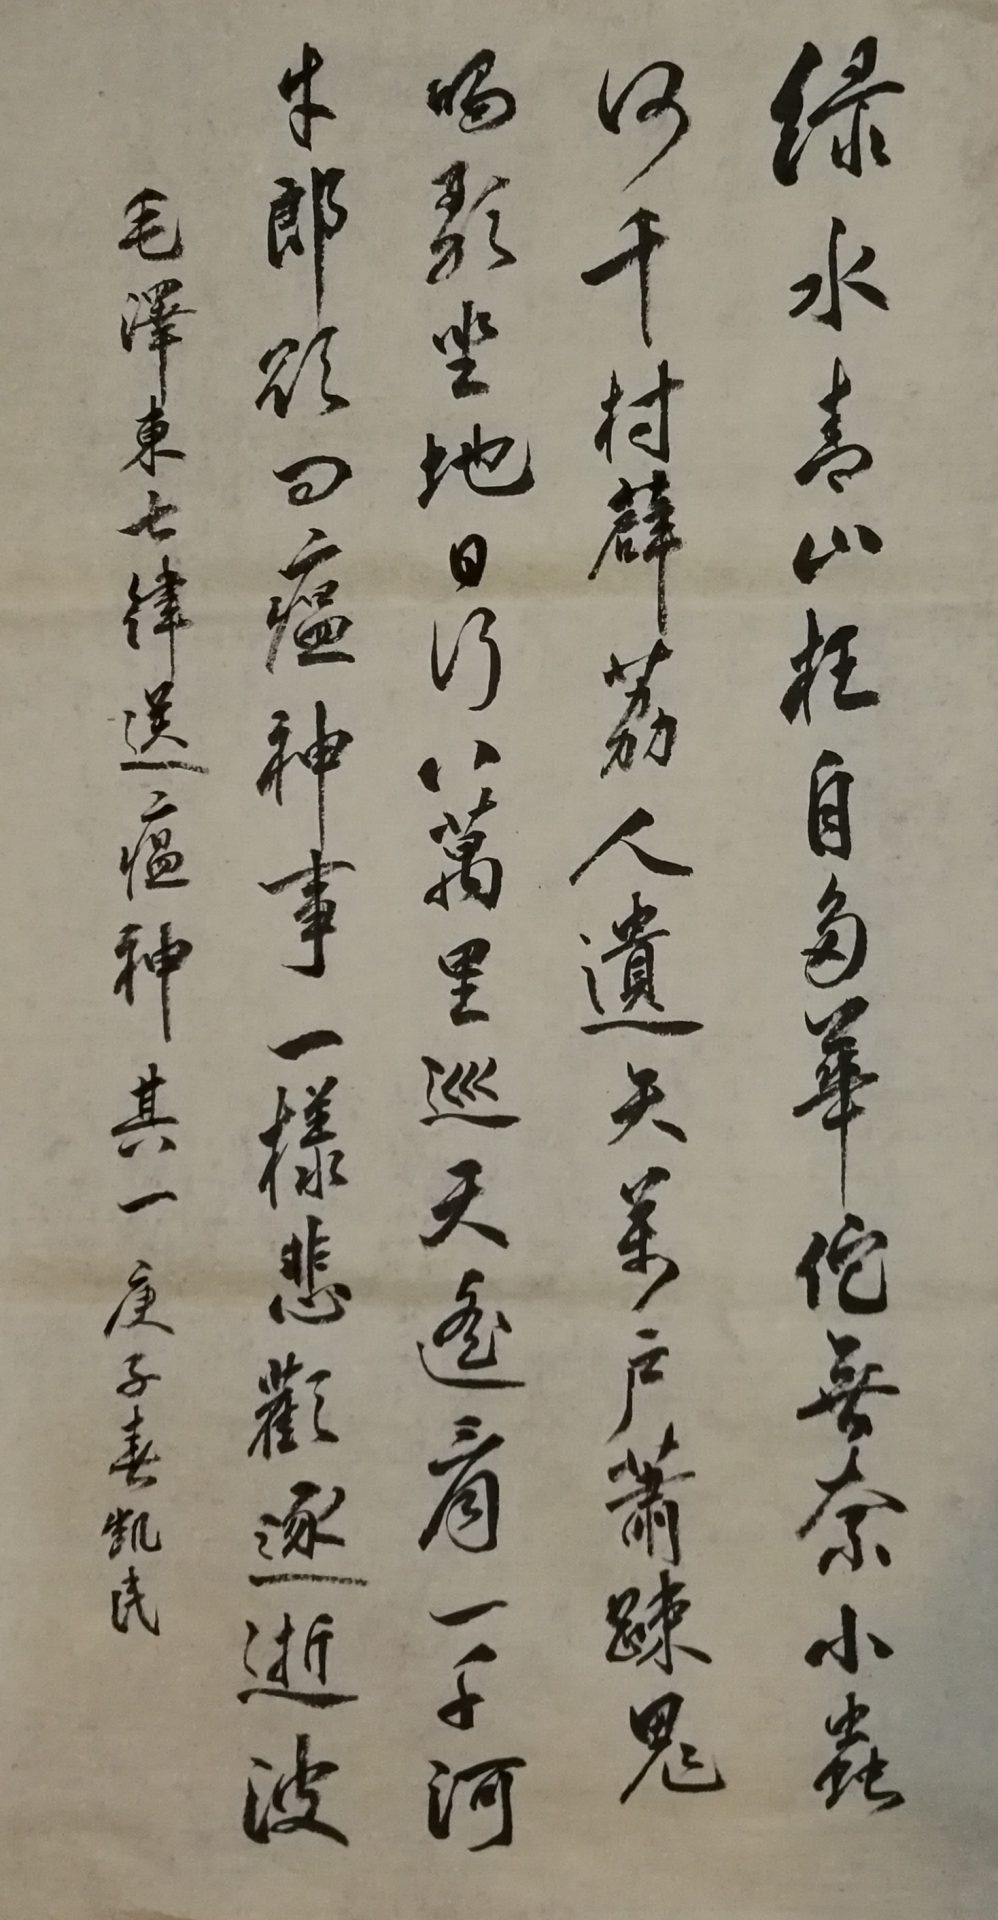 绿水青山枉自多華佗無奈小蟲
何千村薜荔人遺矢萬户蕭疎鬼
唱歌坐地日行八萬里巡天遙看一千河
牛郎欲問瘟神事一樣悲歡逐逝波
毛澤東七律送瘟神其一 庚子春凱民